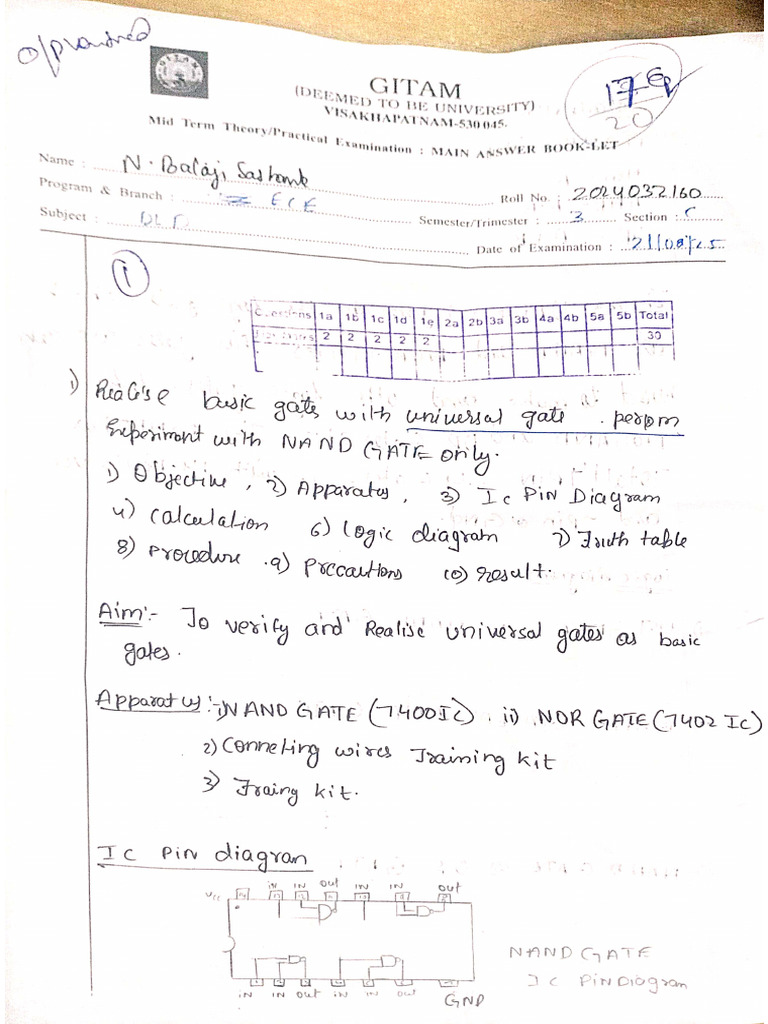 GITAM
(DEEMED TO BE UNIVERSITY)
VISAKHAPATNAM-530 045.
Mid Term Theory/Practical Examination : MAIN ANSWER BOOK-LET
17
20
Name : N. Balaji Sashank
Program & Branch : ECE
Roll No. : 2024032160
Subject : DLD
Semester/Trimester : 3 Section : C
Date of Examination : 21/08/25
1
1a 1b 1c 1d 1e 2a 2b 3a 3b 4a 4b 5a 5b Total
2 2 2 2 2 30
1) Realise basic gates with universal gate . perom
Experiment with NAND GATE only.
1) Objective , 2) Apparatus , 3) Ic PIN Diagram
4) Calculation 6) Logic diagram 7) Truth table
8) Procedure . 9) Precautions 10) result.
Aim:- To verify and Realise universal gates as basic
gates.
Apparatus:- 1) NAND GATE (7400IC) . ii) NOR GATE (7402 IC)
2) Conneting wires Training kit
3) Traing kit.
Ic Pin diagran
Vcc 14 in IN out IN IN out
NAND GATE
IC PIN Diagram
IN IN out in IN out GND